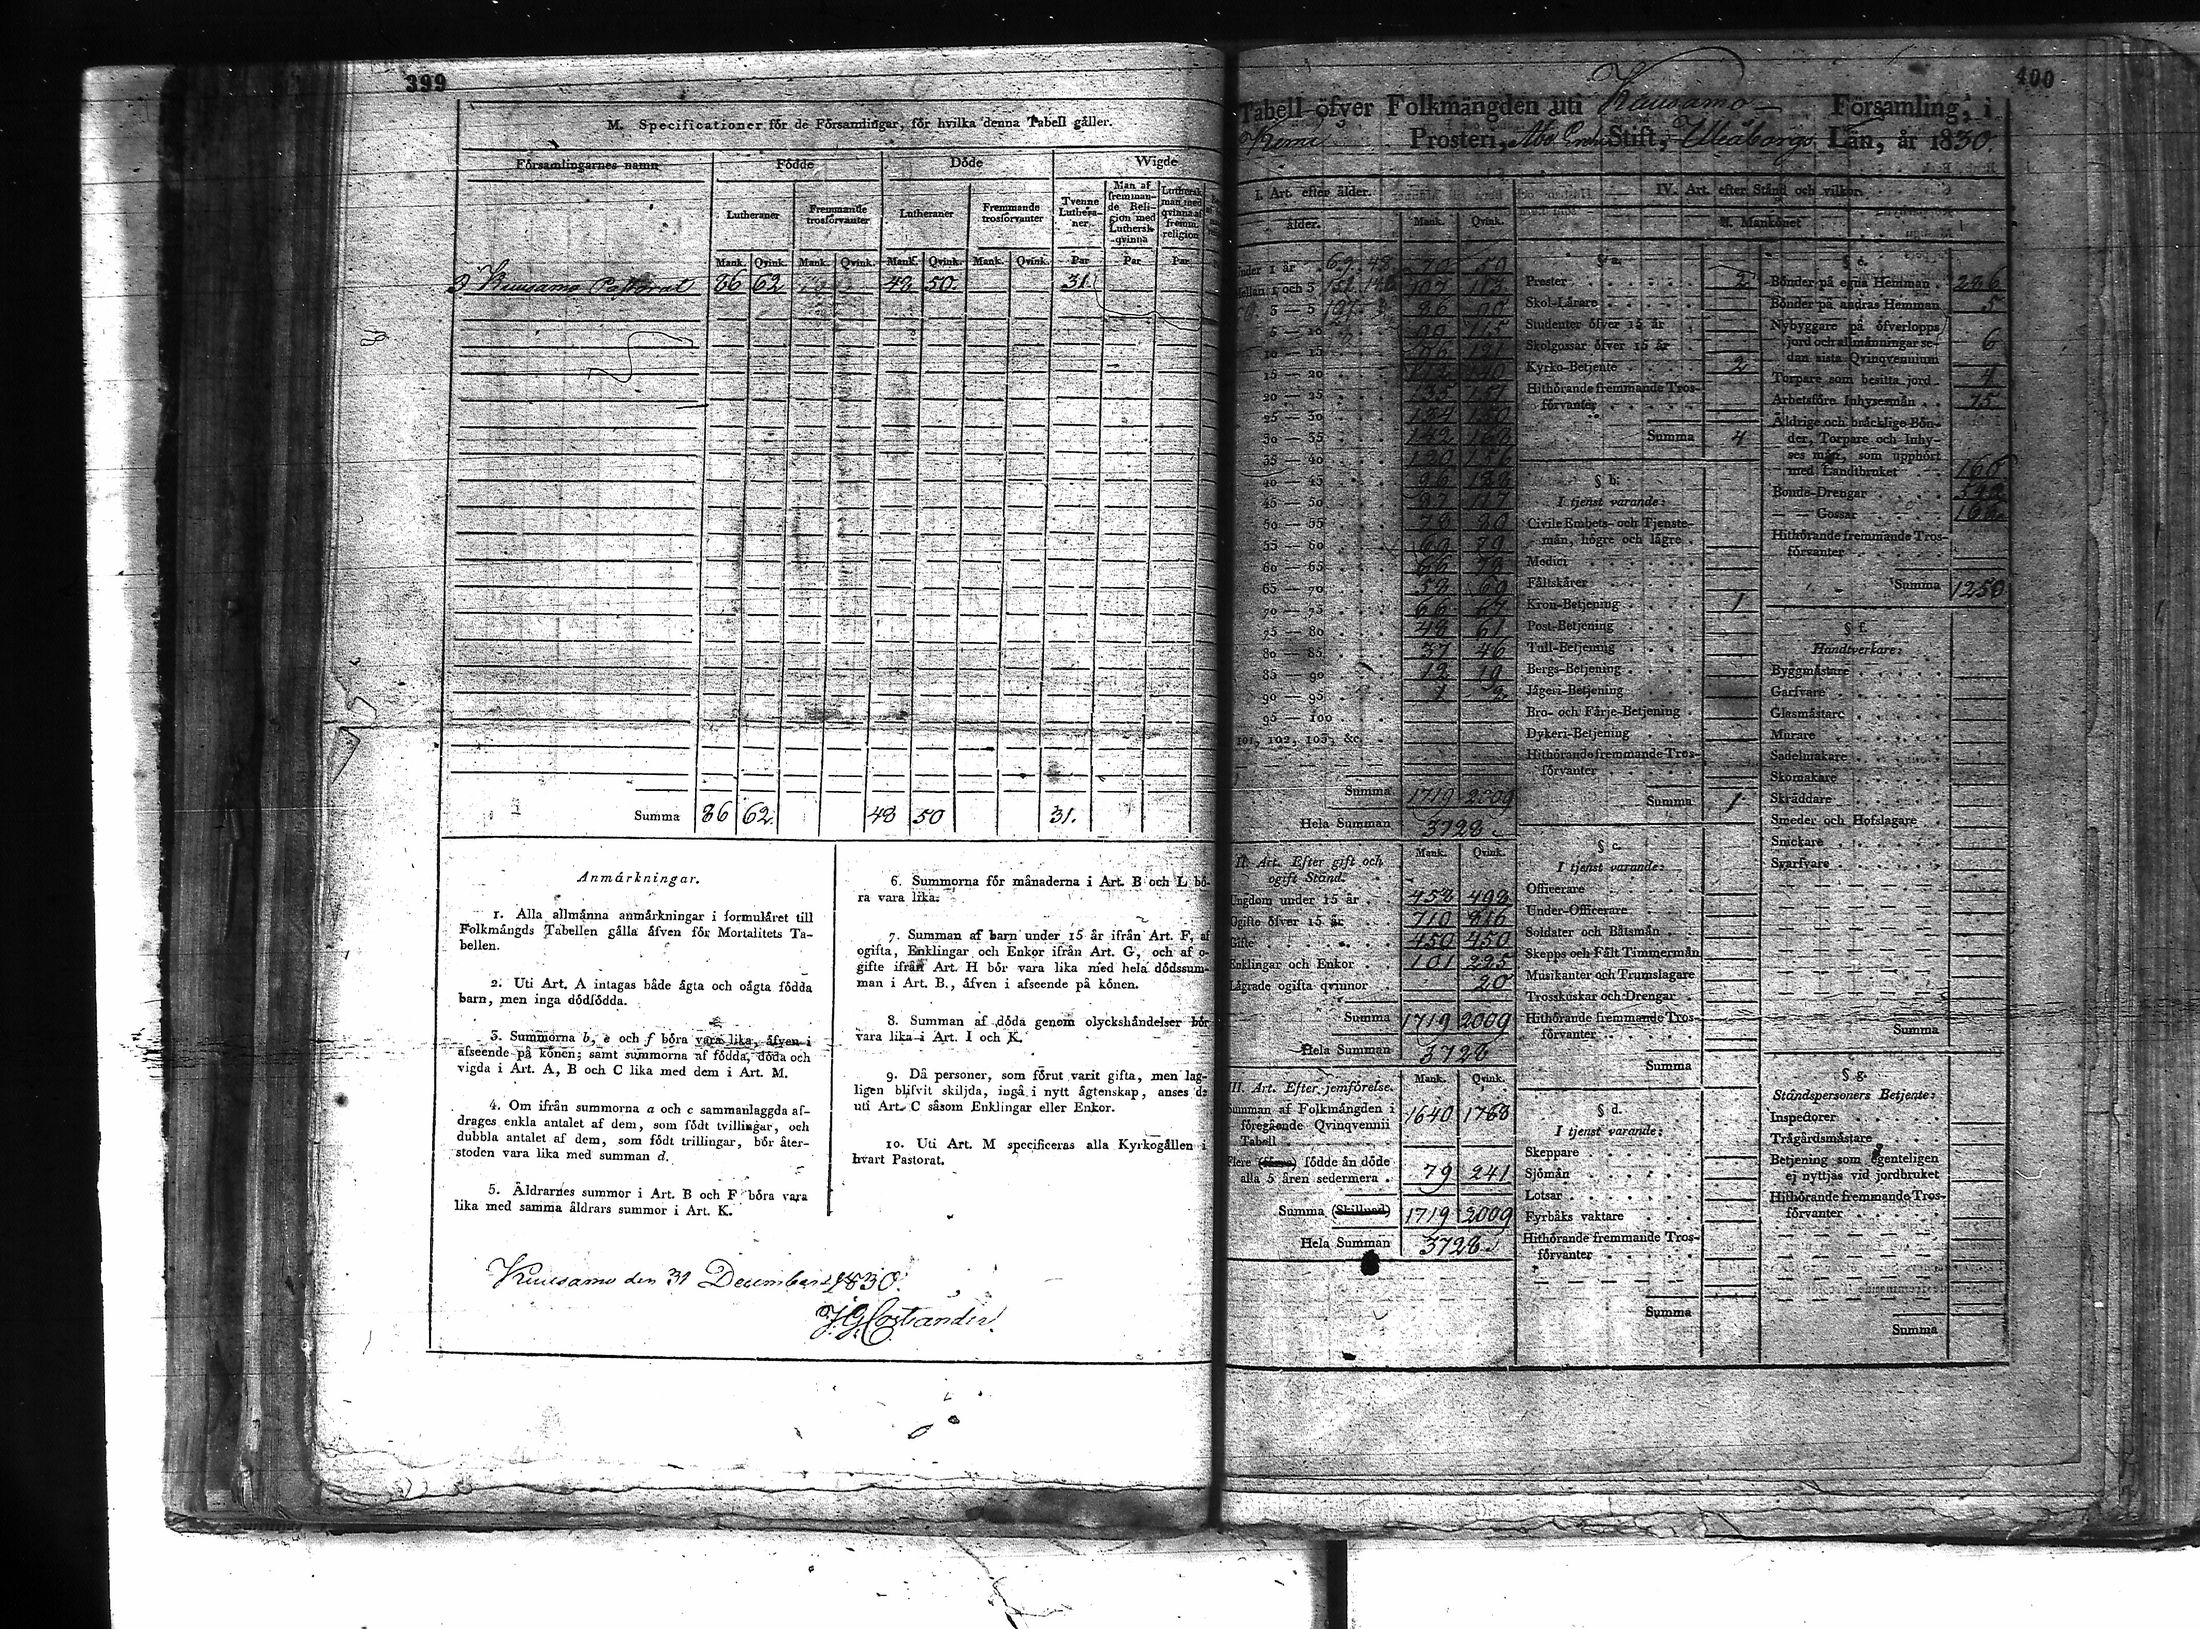 399
M. Specificationer för de Församlingar, för hvilka denna Tabell gäller.
Församlingarnes namn
Födde
Döde
Wigde
Lutheraner
Fremmande trosförvanter
Lutheraner
Fremmande trosförvanter
Tvenne Luthera-ner.
Man af fremman-de Reli-gion med Luthersk qvinna
Luthersk man med qvinna af fremm. religion
Mank. Qvink. Mank. Qvink. Mank. Qvink. Mank. Qvink. Par Par Par
Kuusamo Pastorat 86 62 48 50. 31.
Summa 86 62. 48 50 31.
Anmärkningar.
1. Alla allmänna anmärkningar i formuläret till
Folkmängds Tabellen gälla äfven för Mortalitets Ta-
bellen.
2. Uti Art. A intagas både ägta och oägta födda
barn, men inga dödfödda.
3. Summorna b, e och f böra vara lika, äfven i
afseende på könen; samt summorna af födda, döda och
vigda i Art. A, B och C lika med dem i Art. M.
4. Om ifrån summorna a och c sammanlaggda af-
drages enkla antalet af dem, som födt tvillingar, och
dubbla antalet af dem, som födt trillingar, bör åter-
stoden vara lika med summan d.
5. Åldrarnes summor i Art. B och F böra vara
lika med samma åldrars summor i Art. K.
6. Summorna för månaderna i Art. B och L bö-
ra vara lika.
7. Summan af barn under 15 år ifrån Art. F, af
ogifta, Enklingar och Enkor ifrån Art. G, och af o-
gifte ifrån Art. H bör vara lika med hela dödssum-
man i Art. B., äfven i afseende på könen.
8. Summan af döda genom olyckshändelser bör
vara lika i Art. I och K.
9. Då personer, som förut varit gifta, men lag-
ligen blifvit skiljda, ingå i nytt ägtenskap, anses de
uti Art. C såsom Enklingar eller Enkor.
10. Uti Art. M specificeras alla Kyrkogällen i
hvart Pastorat.
Kuusamo den 31 December 1830.
400
Tabell öfver Folkmängden uti Kuusamo Församling, i
Kemi Prosteri, Åbo Stift, Uleåborgs Län, år 1830.
I. Art. efter ålder.
Ålder. Mank. Qvink.
Under 1 år 70 50
Mellan 1 och 5
5 — 10
10 — 15
15 — 20
20 — 25
25 — 30
30 — 35 142 168
35 — 40 120 156
40 — 45
45 — 50 87 117
50 — 55 78 80
55 — 60
60 — 65
65 — 70
70 — 75 66 67
75 — 80 48 61
80 — 85 37 46
85 — 90 12 19
90 — 95 1 2
95 — 100
101, 102, 103, &c.
Summa 1719 2009
Hela Summan 3728
II. Art. Efter gift och
ogift Stånd. Mank. Qvink.
Ungdom under 15 år 458 498
Ogifte öfver 15 år 710 816
Gifte 450 450
Enklingar och Enkor 101 225
Lägrade ogifta qvinnor 20
Summa 1719 2009
Hela Summan 3728
III. Art. Efter jemförelse. Mank. Qvink.
Summan af Folkmängden i
föregående Qvinqvennii
Tabell 1640 1768
Flere födde än döde
alla 5 åren sedermera 79 241
Summa (Skillnad) 1719 2009
Hela Summan 3728
IV. Art. efter Stånd och vilkor.
A. Mankönet
§ a.
Prester 2
Skol-Lärare
Studenter öfver 15 år
Skolgossar öfver 15 år
Kyrko-Betjente 2
Hithörande fremmande Tros-
förvanter
Summa 4
§ b.
I tjenst varande:
Civile Embets- och Tjenste-
män, högre och lägre
Medici
Fältskärer
Kron-Betjening 1
Post-Betjening
Tull-Betjening
Bergs-Betjening
Jägeri-Betjening
Bro- och Färje-Betjening
Dykeri-Betjening
Hithörande fremmande Tros-
förvanter
Summa 1
§ c.
I tjenst varande:
Officerare
Under-Officerare
Soldater och Båtsmän
Skepps och Fält Timmermän
Musikanter och Trumslagare
Trosskuskar och Drengar
Hithörande fremmande Tros-
förvanter
Summa
§ d.
I tjenst varande:
Skeppare
Sjömän
Lotsar
Fyrbåks vaktare
Hithörande fremmande Tros-
förvanter
Summa
§ e.
Bönder på egna Hemman 286
Bönder på andras Hemman 5
Nybyggare på öfverlopps
jord och allmänningar se-
dan sista Qvinqvennium 6
Torpare som besitta jord 4
Arbetsföre Inhysesmän 75
Åldrige och bräcklige Bön-
der, Torpare och Inhy-
ses män, som upphört
med Landtbruket
Bonde-Drengar
— — Gossar
Hithörande fremmande Tros-
förvanter
Summa 1250
§ f.
Handtverkare:
Byggmästare
Garfvare
Glasmästare
Murare
Sadelmakare
Skomakare
Skräddare
Smeder och Hofslagare
Snickare
Svarfvare
Summa
§ g.
Ståndspersoners Betjente:
Inspectorer
Trägårdsmästare
Betjening som egenteligen
ej nyttjas vid jordbruket
Hithörande fremmande Tros-
förvanter
Summa